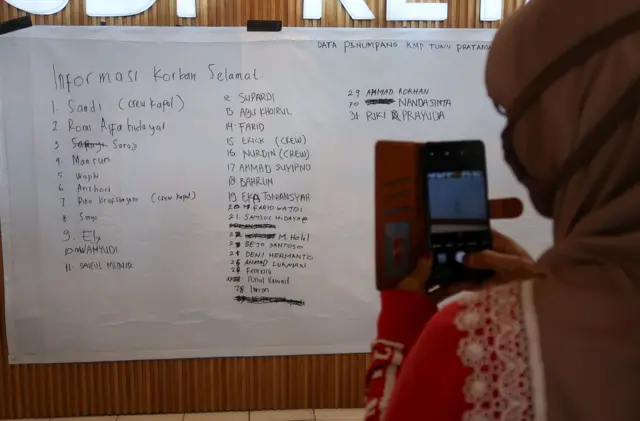 DATA PENUMPANG KMP TUNU PRATAMA
Informasi Korban Selamat.
1. Sandi (crew kapal)
2 Romi Alfa hidayat
3 Saroji
4 Mansun
5
6 Anshori
7 (crew kapal)
8 Sayo
9. Ely
10 WAHYUDI
11. SAIFUL MUNIR
12 SUPARDI
13 AGU KHOIRUL
14 FARID
15 ERICK (CREW)
16 NURDIN (CREW)
17 AHMAD SUYIPNO
18 BAHRUN
19 EKA TONIANSYAH
20 FARID WATDI
21. SAMSUL HIDAYAT
M. Halil
BEJO SANTOSO
DENI HERMANTO
AHMAD LUKMAN
Febriana
28 Imron
29 AHMAD ROKHAN
30 NANDA SINTA
31 RIKI PRAYUDA